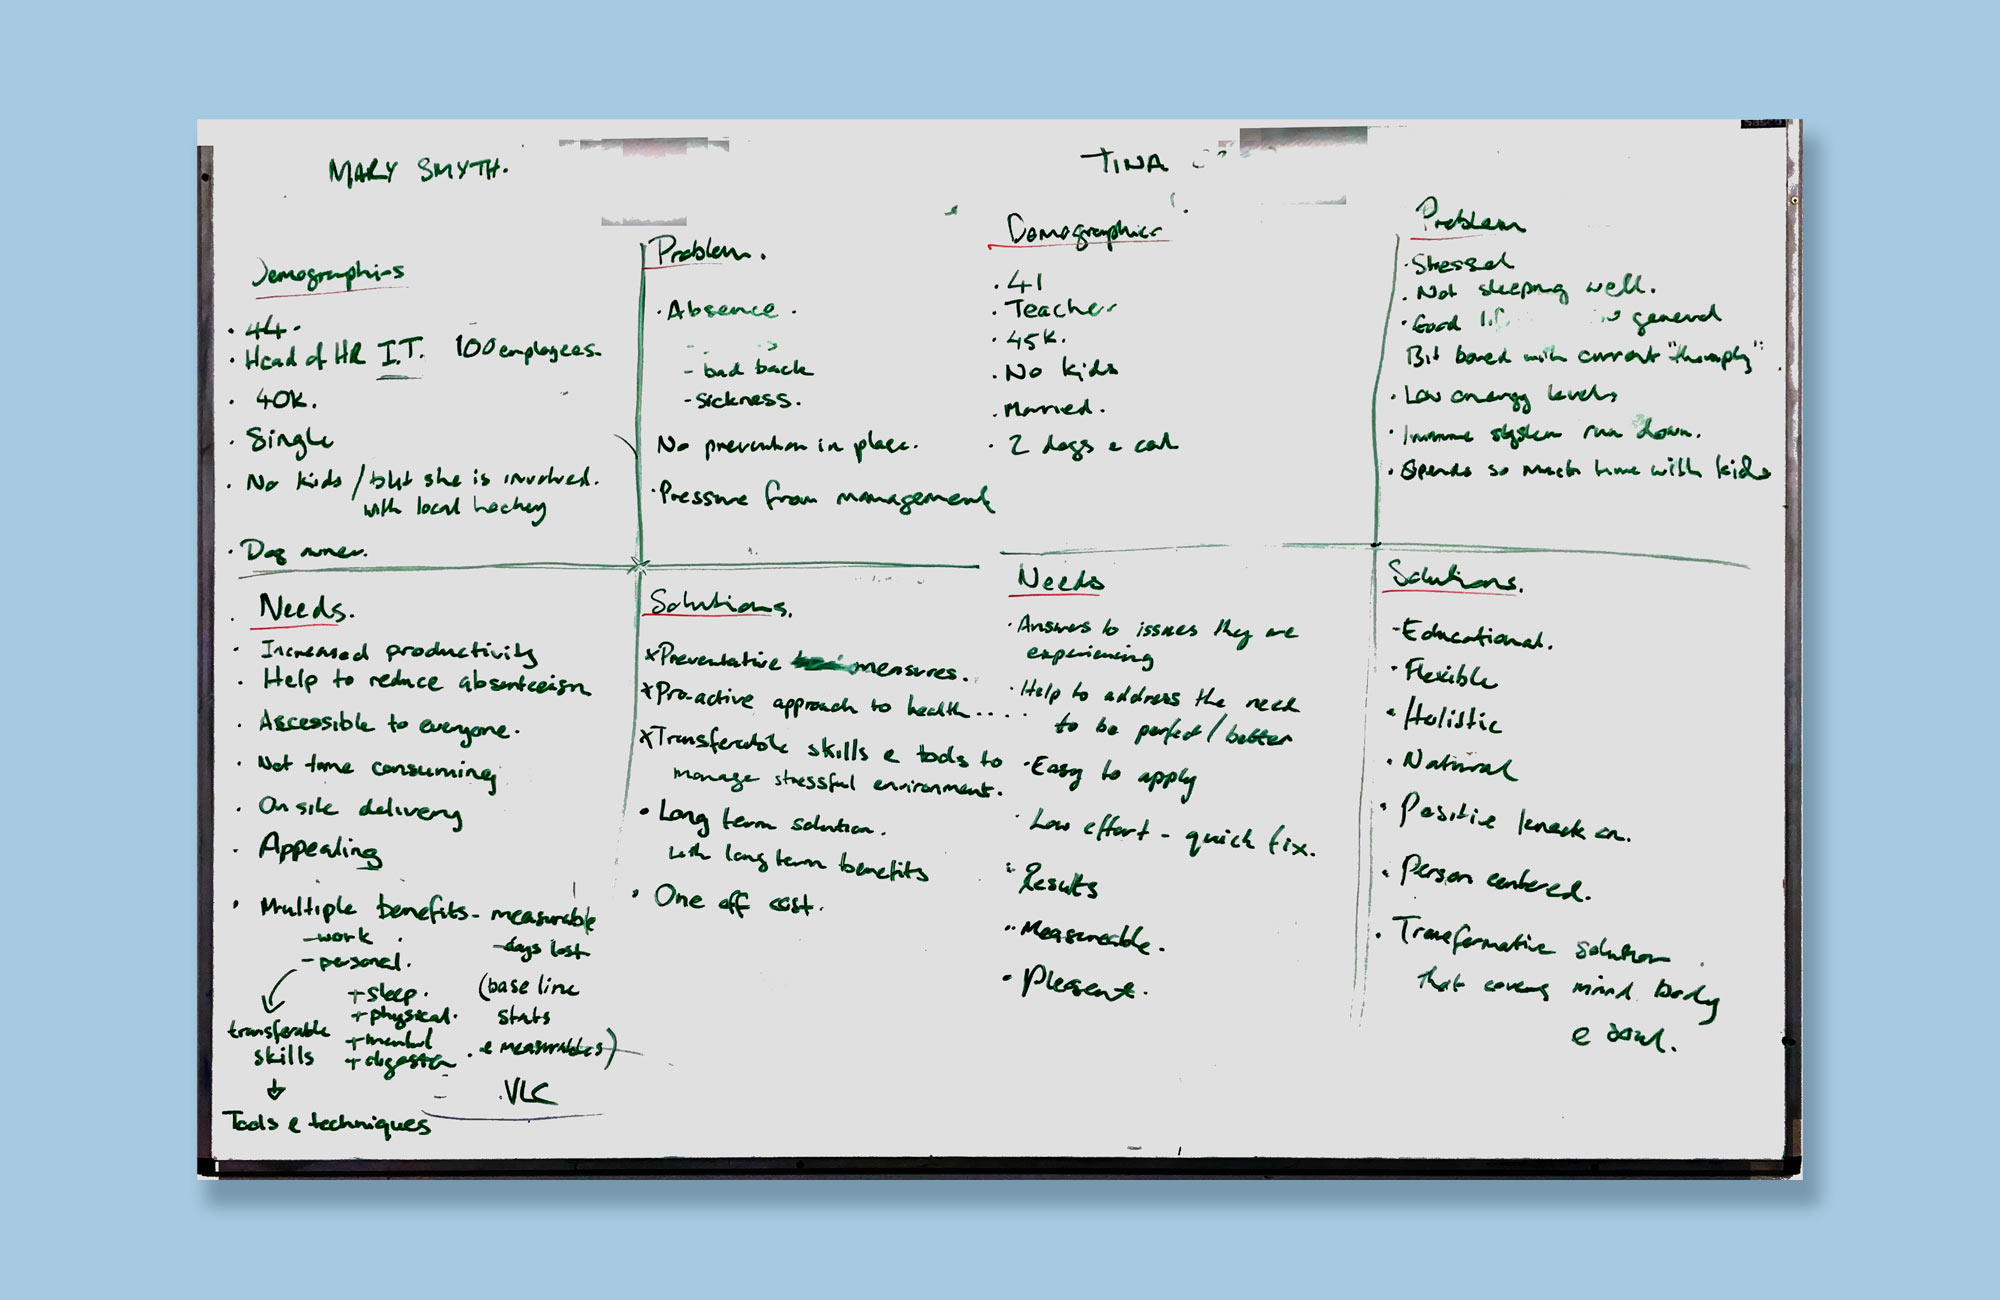 MARY SMYTH.
Demographics
· 44.
· Head of HR I.T. 100 employees.
· 40K.
· Single
· No kids / but she is involved.
with local hockey
· Dog owner.
Problem.
· Absence.
- bad back
- sickness.
No prevention in place.
· Pressure from management
· Needs.
· Increased productivity
· Help to reduce absenteeism
· Accessible to everyone.
· Not time consuming
· On site delivery
· Appealing
· Multiple benefits - measurable
- work
- personal.
- days lost
+ sleep.
+ physical.
+ mental
+ digestion
(base line
stats
e measurables)
transferable
skills
Tools e techniques
VLC
Solutions.
x Preventative measures.
x Pro-active approach to health....
x Transferable skills e tools to
manage stressful environment.
· Long term solution.
with long term benefits
· One off cost.
TINA
Demographics
· 41
· Teacher
· 45K.
· No kids
· Married.
· 2 dogs e cat
Problem
· Stressed
· Not sleeping well.
· Good general
Bit bored with current "therapy".
· Low energy levels
· Immune system run down.
· Spends so much time with kids
Needs
· Answers to issues they are
experiencing
· Help to address the need
to be perfect / better
· Easy to apply
· Low effort - quick fix.
· Results
· Measureable.
· Plesent.
Solutions.
- Educational.
· Flexible
· Holistic
· Natural
· Positive knock on.
· Person centered.
· Transformative solution
that covers mind body
e soul.